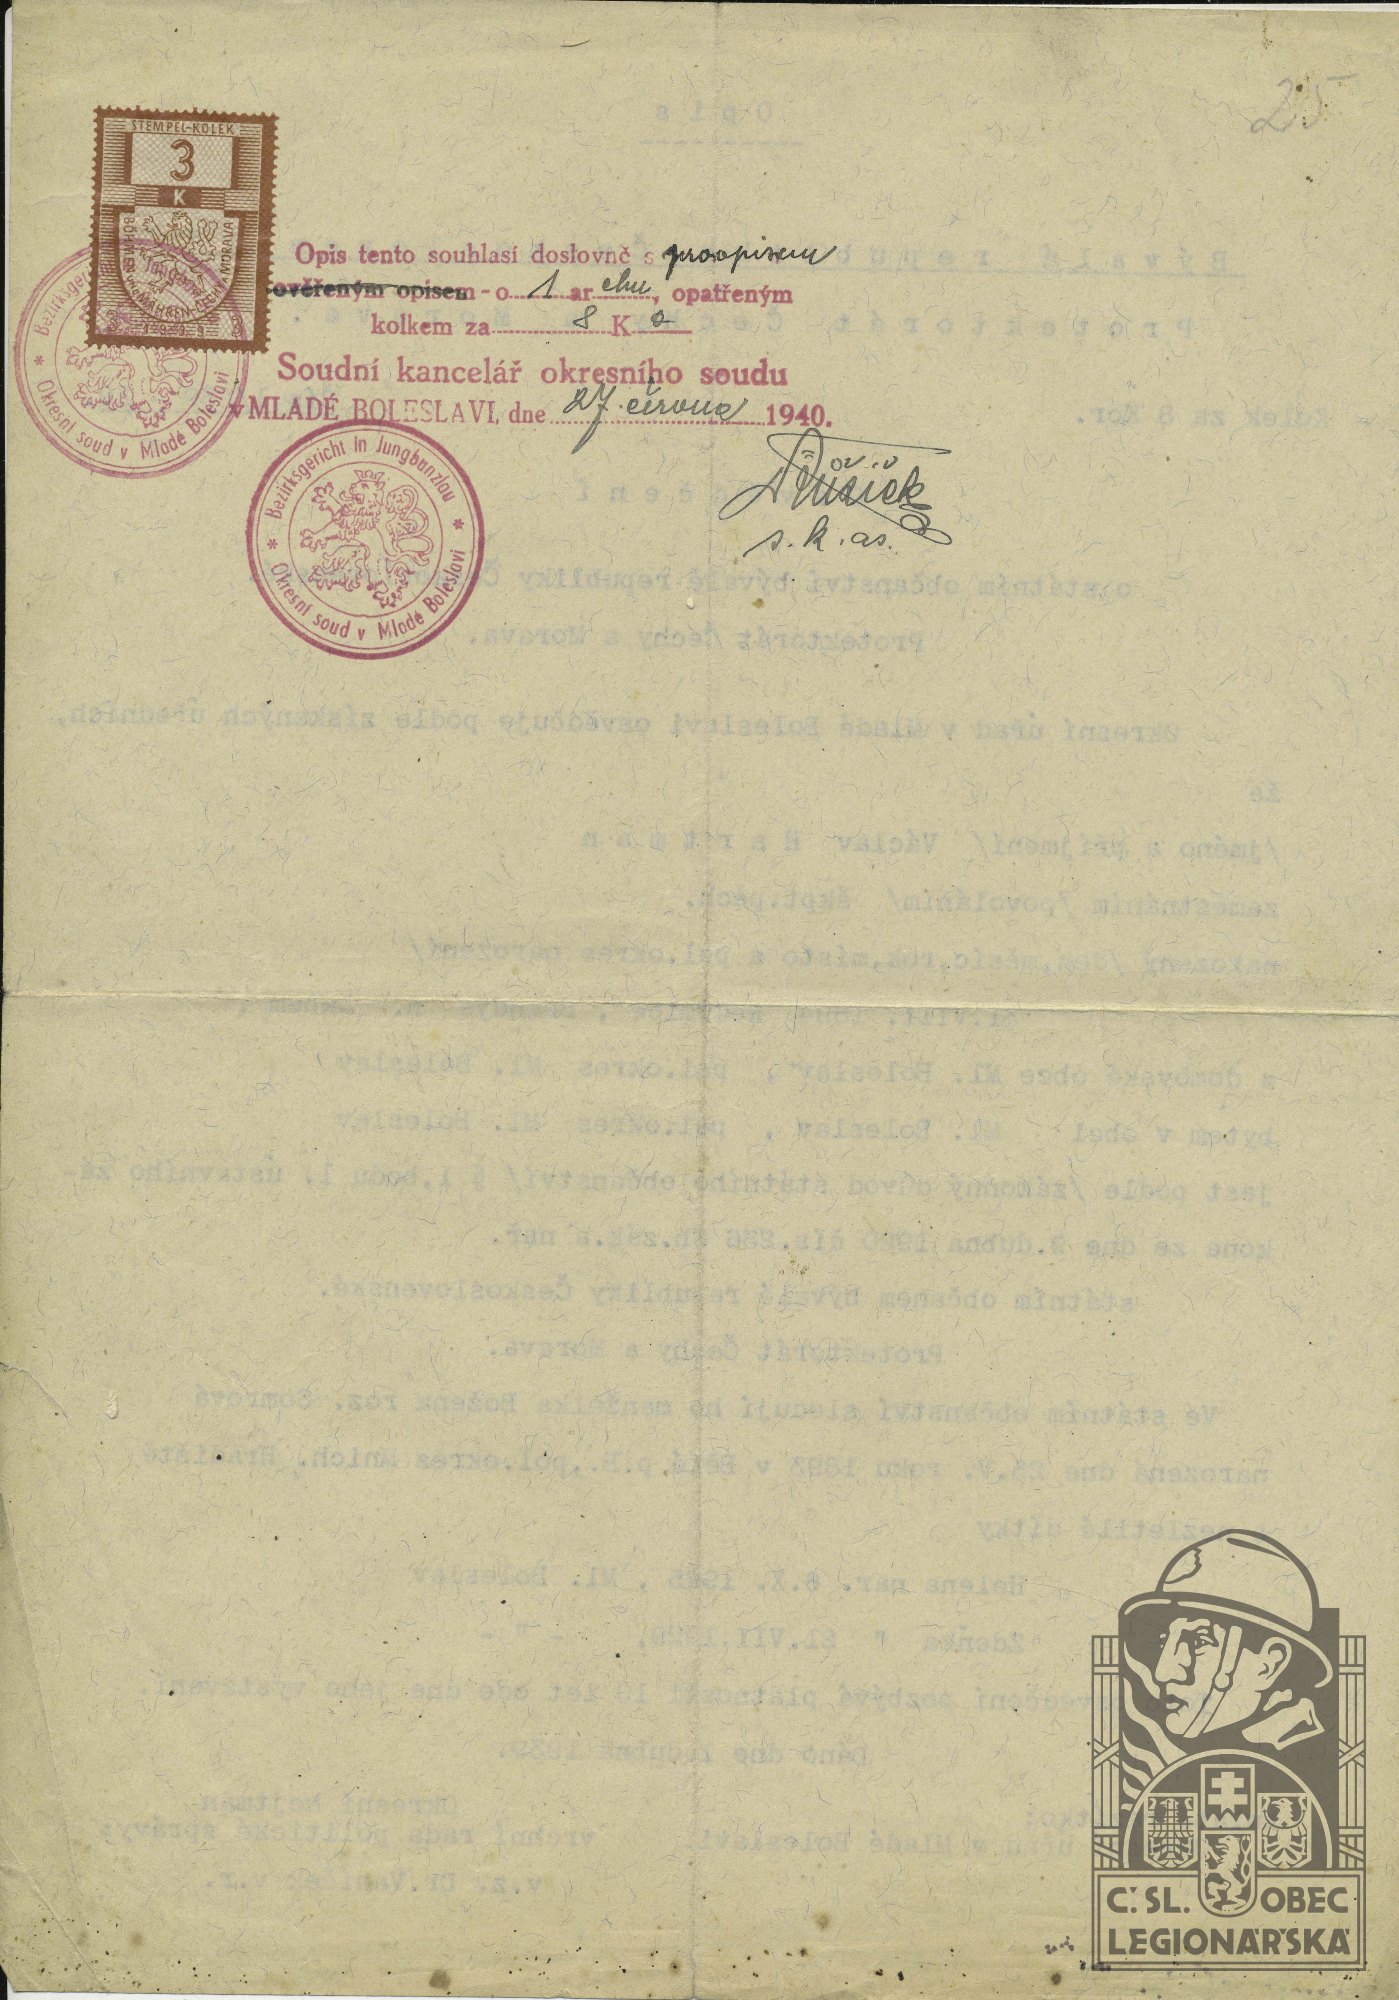 25
STEMPEL-KOLEK
3
K
BÖHMEN UND MÄHREN-ČECHY A MORAVA
1939
Opis tento souhlasí doslovně s prvopisem
ověřeným opisem - o 1 archu, opatřeným
kolkem za 8 K
Soudní kancelář okresního soudu
v MLADÉ BOLESLAVI, dne 27. června 1940.
s. k. as.
Okresní soud v Mladé Boleslavi
Bezirksgericht in Jungbunzlau
Okresní soud v Mladé Boleslavi
Opis
Bývalá republika
Protektorát Čechy a Morava.
Kolek za 8 Kor.
o státním občanství bývalé republiky
Protektorát Čechy a Morava.
Okresní úřad v Mladé Boleslavi osvědčuje podle získaných úředních,
že
/jméno a příjmení/ Václav Hartman
zaměstnáním /povoláním/ škpt.pěch.
narozený /den,měsíc,rok,místo a pol.okres narození/
a domovské obce Ml. Boleslav , pol.okres Ml. Boleslav
bytem v obci Ml. Boleslav , pol.okres Ml. Boleslav
jest podle /zákonný důvod státního občanství/ § 1.bodu 1. ústavního zá-
kona ze dne 9.dubna 1920 čís.236 Sb.zák.a nař.
státním občanem bývalé republiky Československé.
Protektorát Čechy a Morava.
Ve státním občanství sledují ho manželka Božena roz.
narozená dne 25.V. roku 1898 v Bělá p.B.,pol.okres Mnich. Hradiště
nezletilé dítky
Helena nar. 6.X. , Ml. Boleslav
Zdenka " 21.VII. , - " -
osvědčení pozbývá platnosti 10 let ode dne jeho vystavení.
Dáno dne dubna 1939.
Okresní hejtman
úřad v Mladé Boleslavi vrchní rada politické správy:
v.z. Dr. v.r.
Č.SL. OBEC
LEGIONÁŘSKÁ